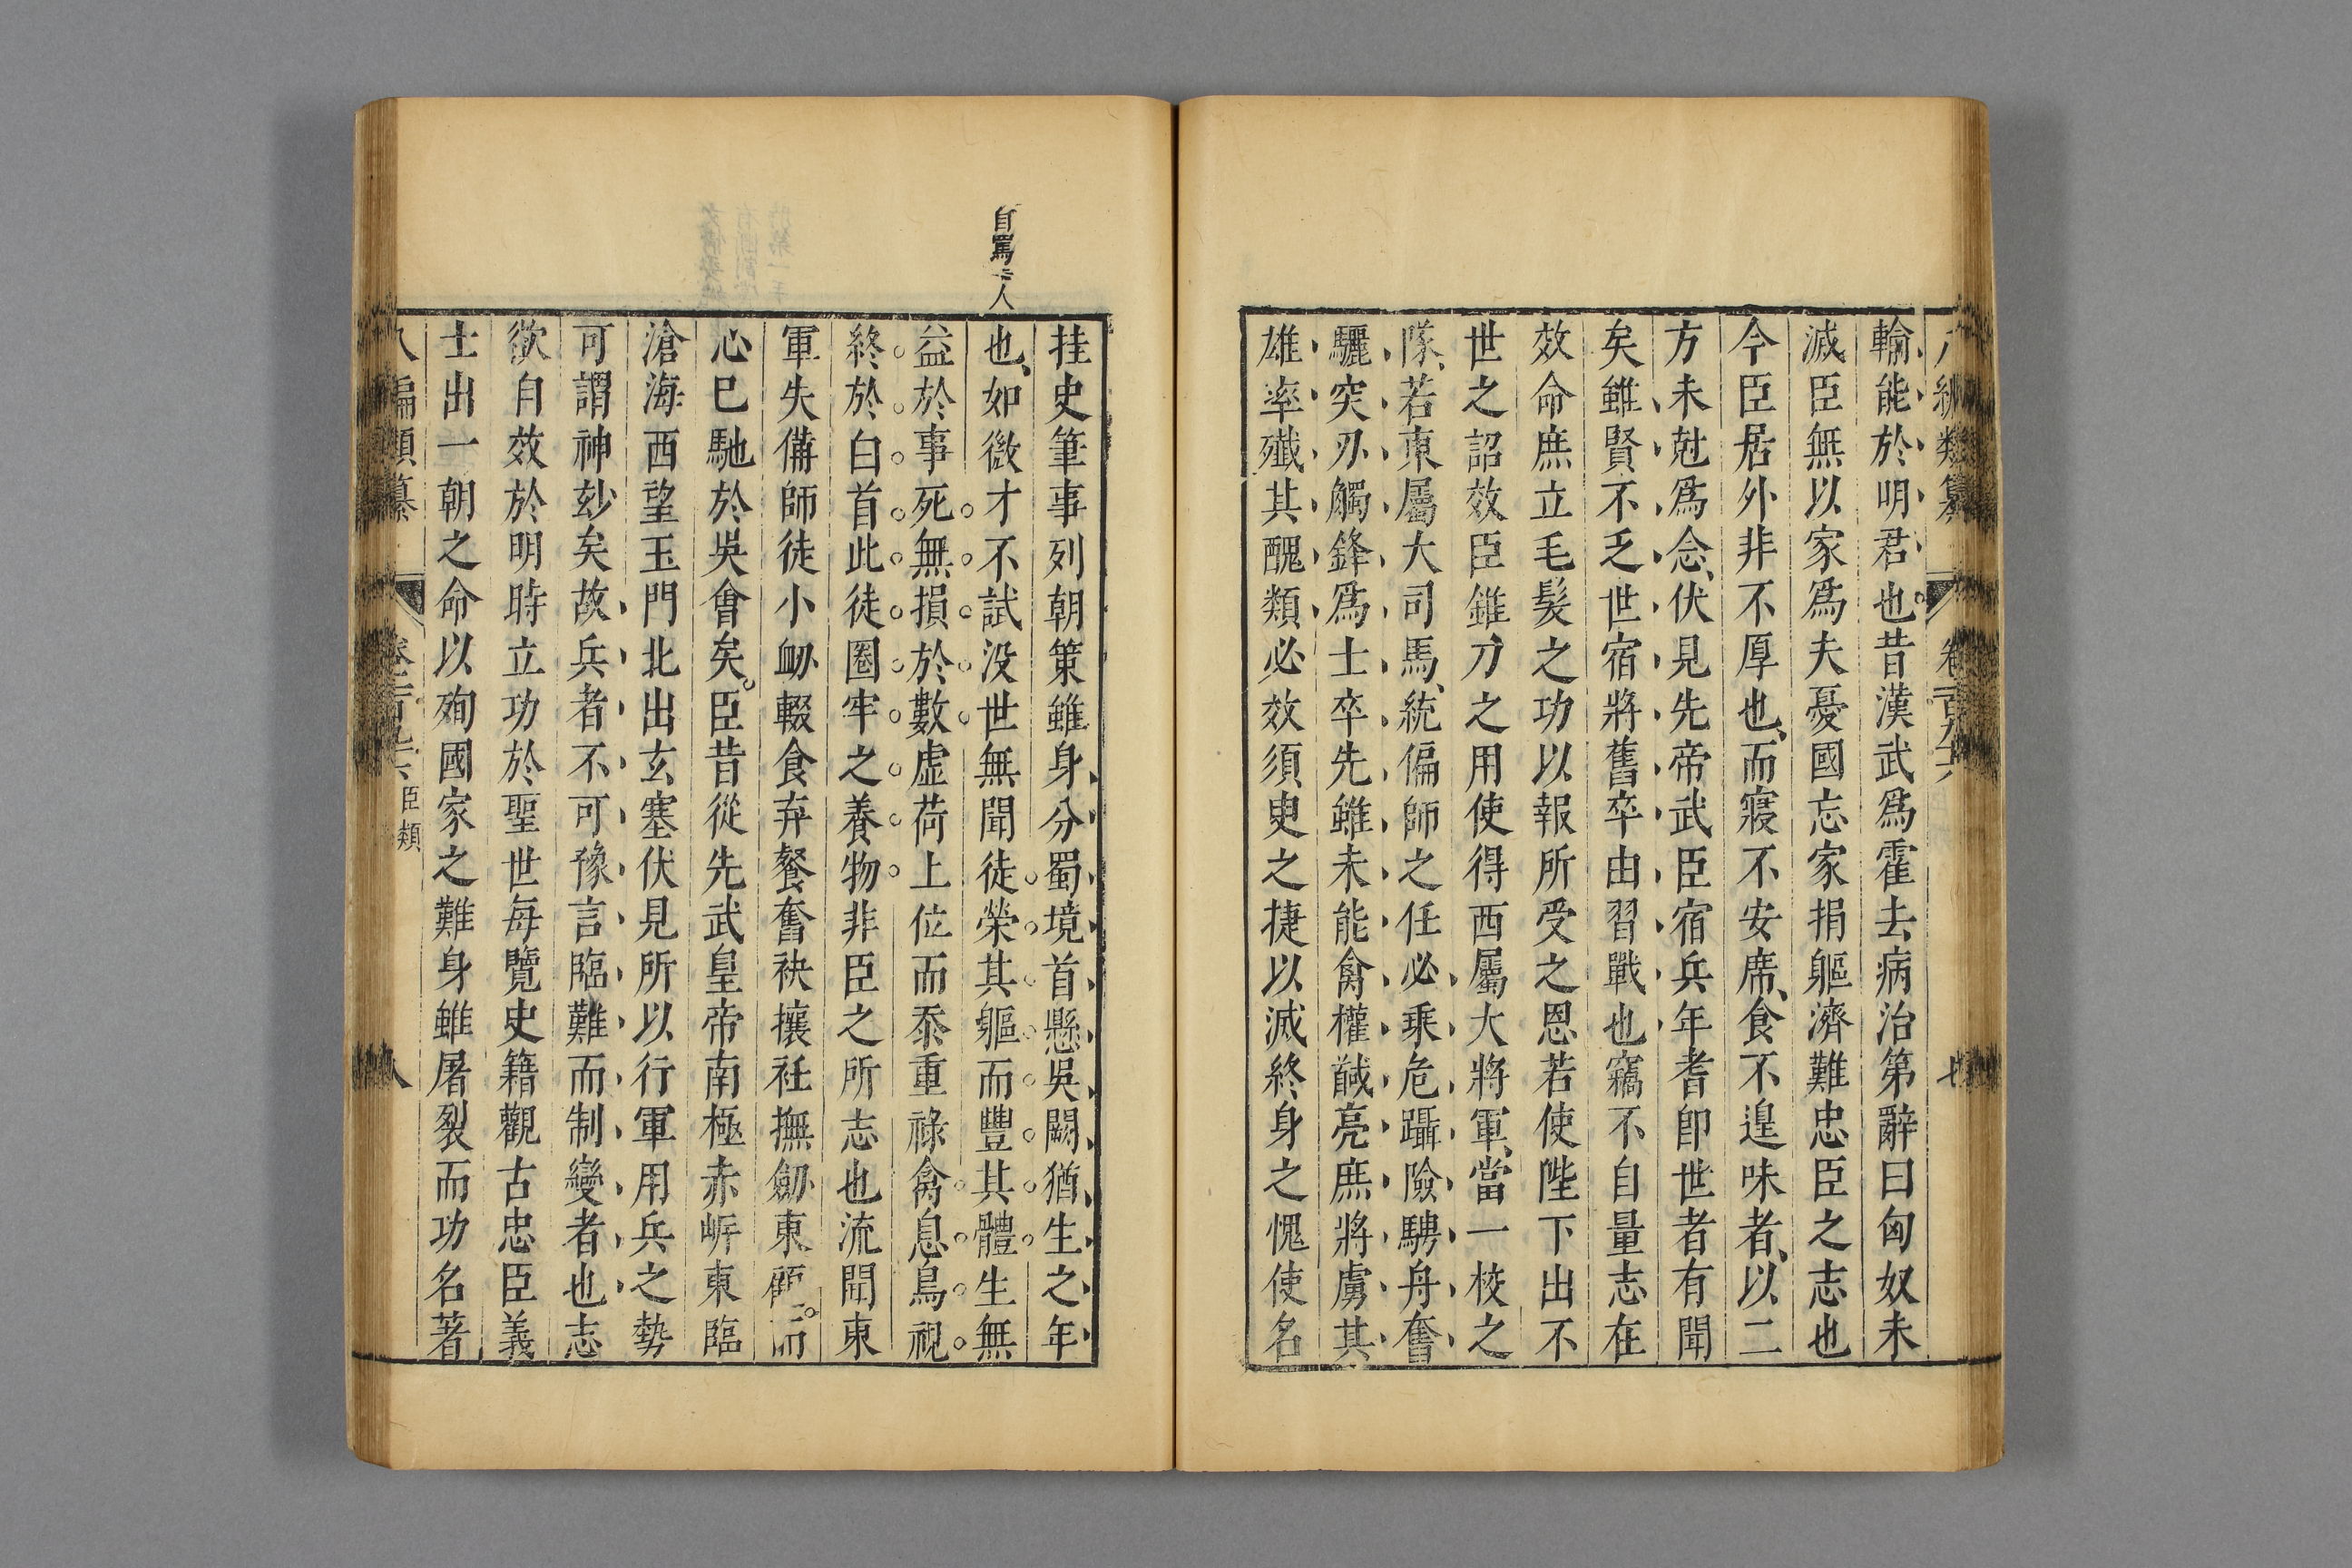 輸能於明君也昔漢武爲霍去病治第辭曰匈奴未
滅臣無以家爲夫憂國忘家捐軀濟難忠臣之志也
今臣居外非不厚也而寢不安席食不遑味者以二
方未尅爲念伏見先帝武臣宿兵年耆即世者有聞
矣雖賢不乏世宿將舊卒由習戰也竊不自量志在
效命庶立毛髮之功以報所受之恩若使陛下出不
世之詔效臣錐刀之用使得西屬大將軍當一校之
隊若東屬大司馬統偏師之任必乘危躡險騁舟奮
驪突刃觸鋒爲士卒先雖未能禽權馘亮庶將虜其
雄率殲其醜類必效須臾之捷以滅終身之愧使名
挂史筆事列朝策雖身分蜀境首懸吳闕猶生之年
也如微才不試沒世無聞徒榮其軀而豐其體生無
益於事死無損於數虛荷上位而忝重祿禽息鳥視
終於白首此徒圈牢之養物非臣之所志也流聞東
軍失備師徒小衂輟食弃餐奮袂攘衽撫劒東顧而
心已馳於吳會矣臣昔從先武皇帝南極赤岍東臨
滄海西望玉門北出玄塞伏見所以行軍用兵之勢
可謂神玅矣故兵者不可豫言臨難而制變者也志
欲自效於明時立功於聖世每覽史籍觀古忠臣義
士出一朝之命以殉國家之難身雖屠裂而功名著
八編類纂 臣類 八